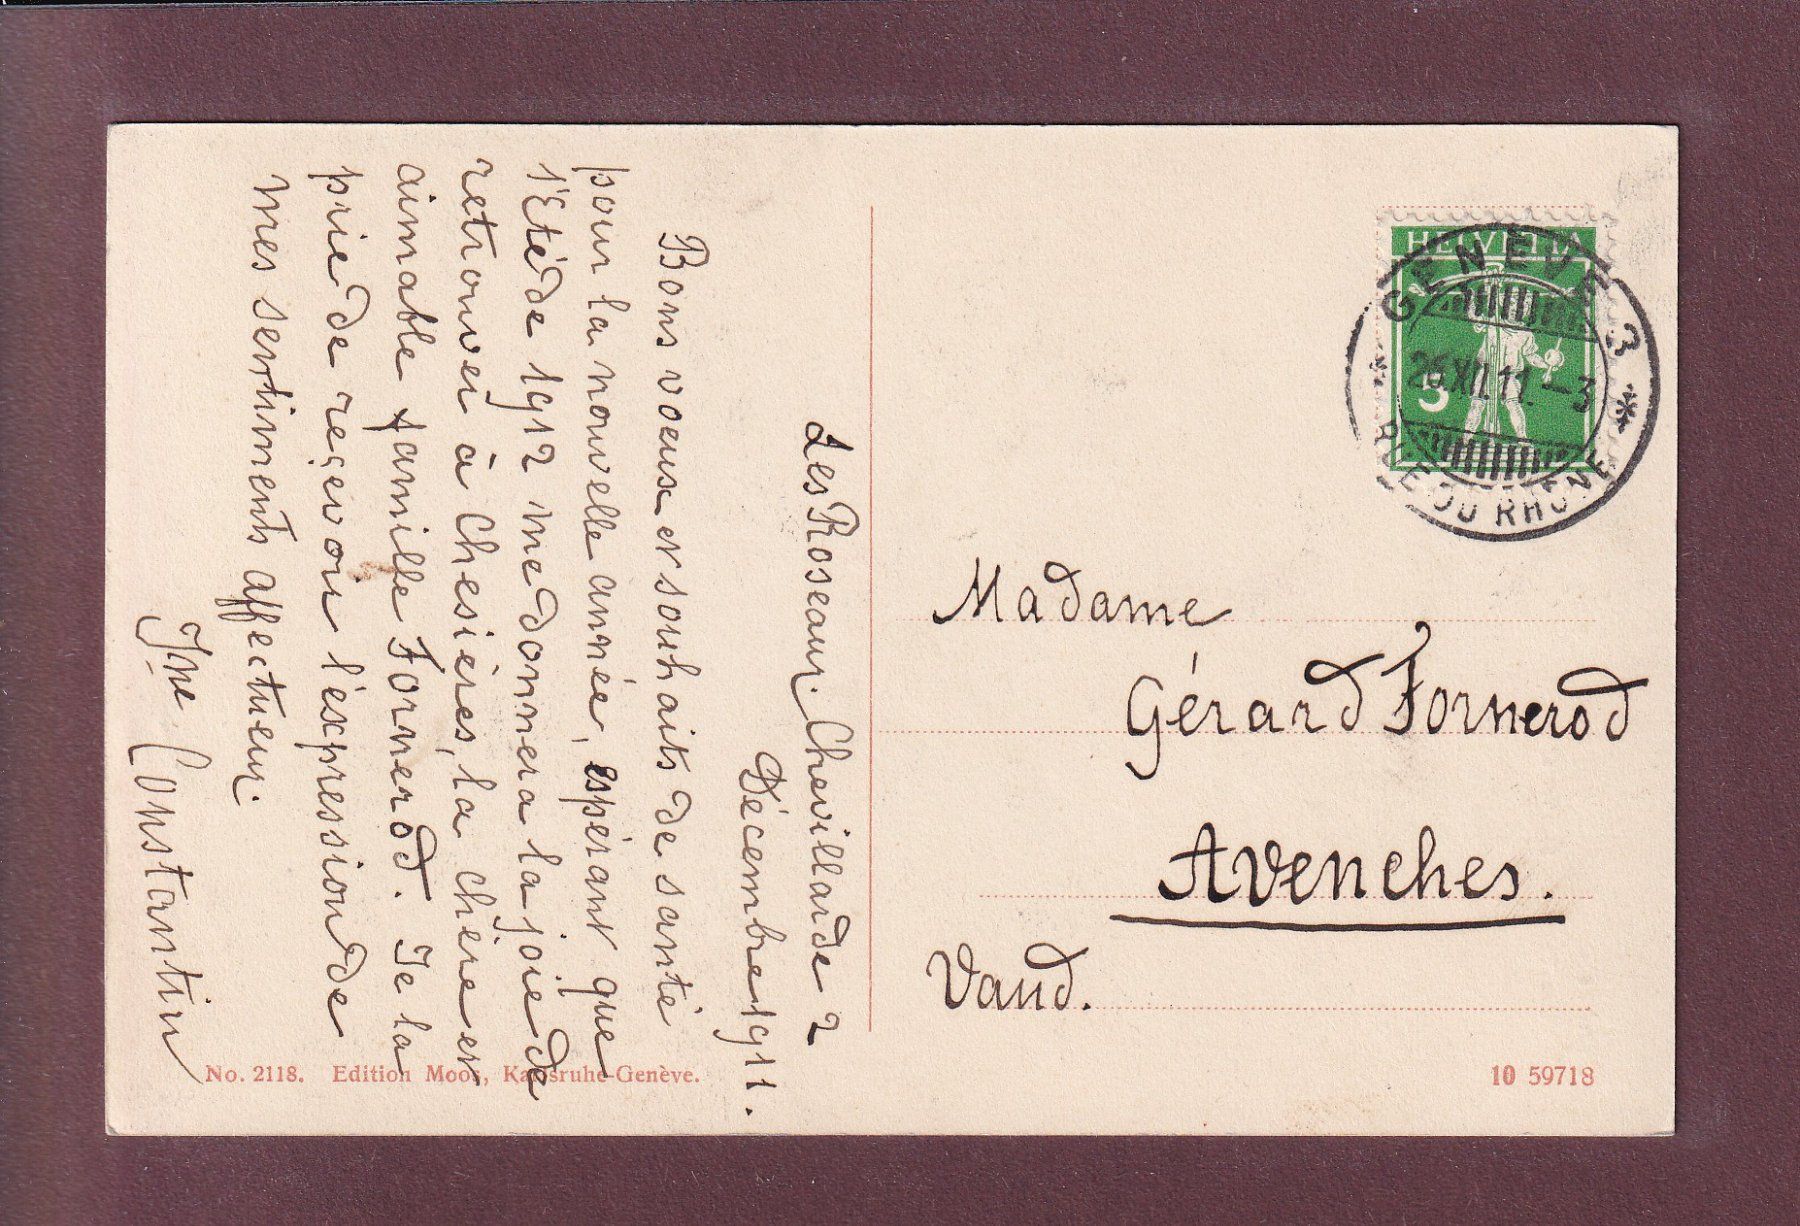 Les Roseaux. Chevillarde 2
Décembre 1911.
Bons voeux et souhaits de santé
pour la nouvelle année, espérant que
l'Eté de 1912 me donnera la joie de
retrouver à Chesières, la chère et
aimable famille Fornerod. Je la
prie de reçevoir l'éxpression de
mes sentiments affectueux.
Constantin
HELVETIA
5
GENÈVE 3
26.XII.11.-3
RUE DU RHÔNE
Madame
Gérard Fornerod
Avenches.
Vaud.
No. 2118. Edition Moos, Karlsruhe-Genève.
10 59718